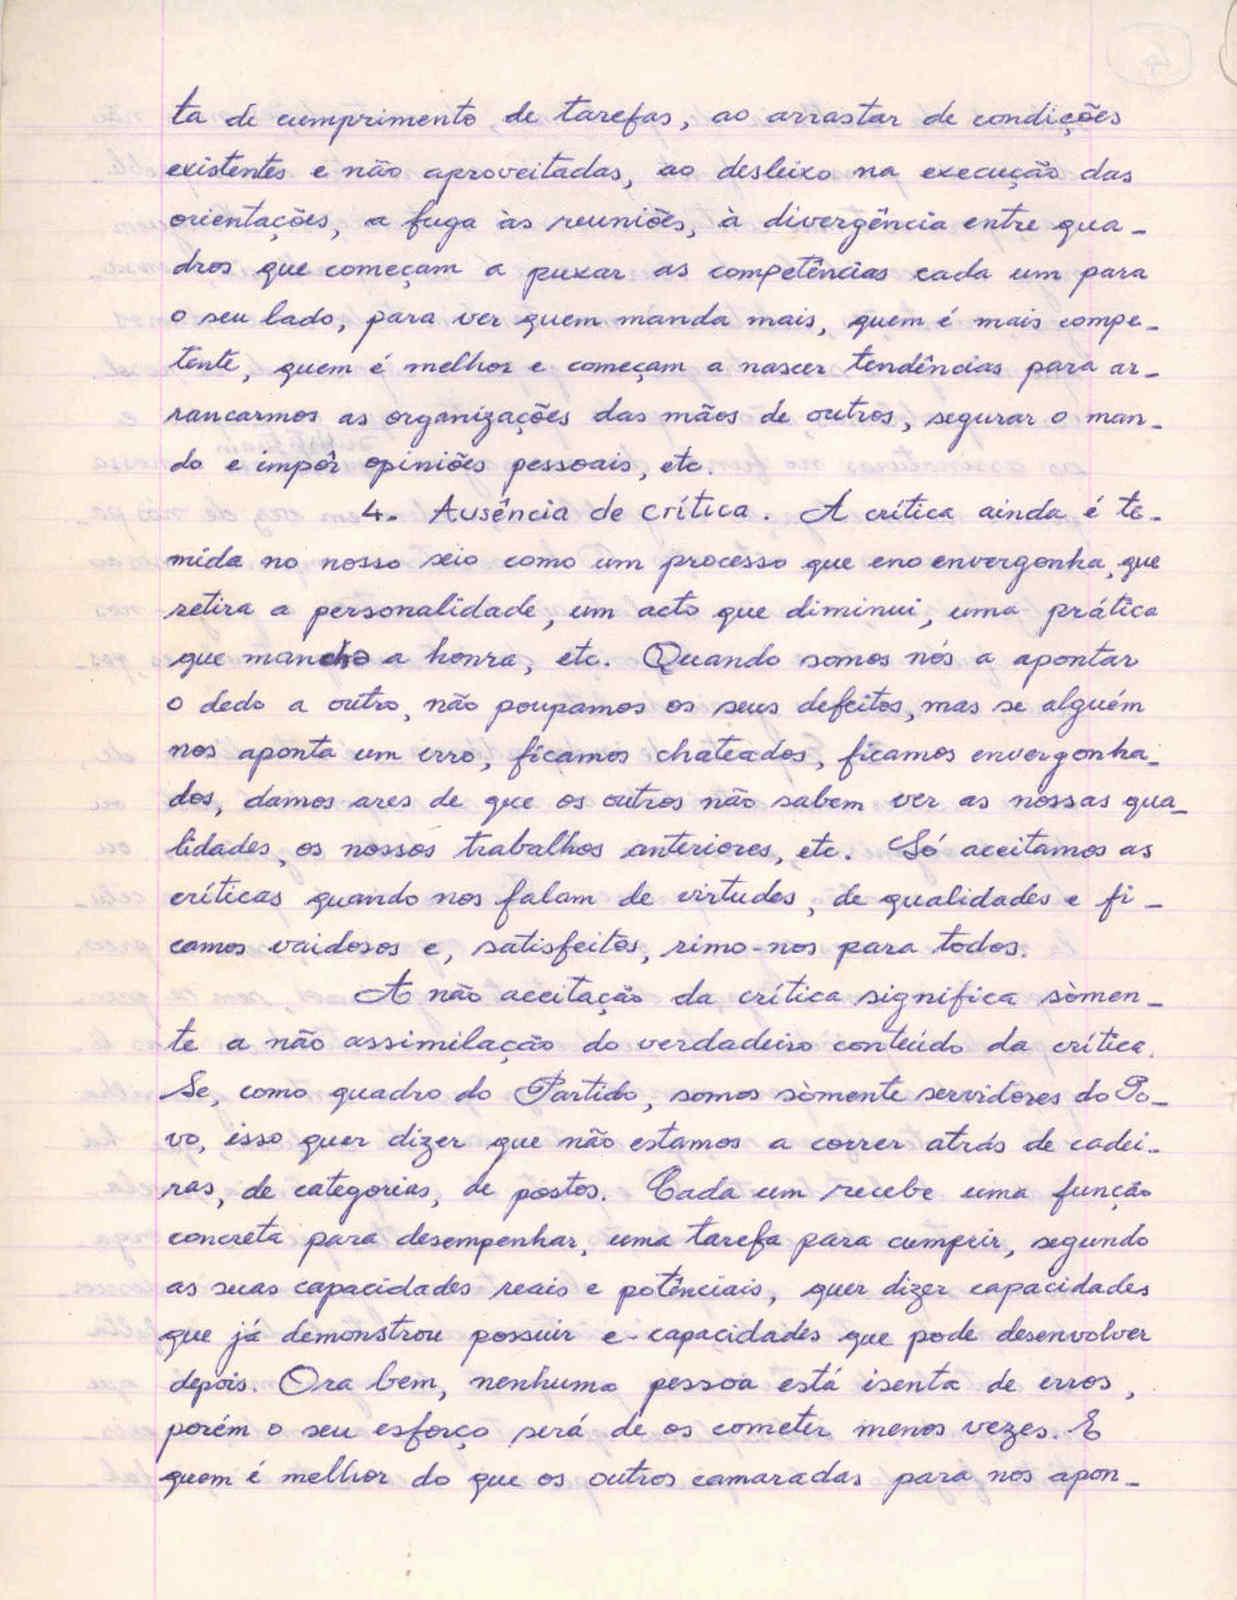 4
ta de cumprimento de tarefas, ao arrastar de condições
existentes e não aproveitadas, ao desleixo na execução das
orientações, a fuga às reuniões, à divergência entre qua-
dros que começam a puxar as competências cada um para
o seu lado, para ver quem manda mais, quem é mais compe-
tente, quem é melhor e começam a nascer tendências para ar-
rancarmos as organizações das mãos de outros, segurar o man-
do e impôr opiniões pessoais, etc.
4. Ausência de crítica. A crítica ainda é te-
mida no nosso seio como um processo que envergonha, que
retira a personalidade, um acto que diminui, uma prática
que mancha a honra, etc. Quando somos nós a apontar
o dedo a outro, não poupamos os seus defeitos, mas se alguém
nos aponta um erro, ficamos chateados, ficamos envergonha-
dos, damos ares de que os outros não sabem ver as nossas qua-
lidades, os nossos trabalhos anteriores, etc. Só aceitamos as
críticas quando nos falam de virtudes, de qualidades e fi-
camos vaidosos e, satisfeitos, rimo-nos para todos.
A não aceitação da crítica significa sòmen-
te a não assimilação do verdadeiro conteúdo da crítica.
Se, como quadro do Partido, somos sòmente servidores do Po-
vo, isso quer dizer que não estamos a correr atrás de cadei-
ras, de categorias, de postos. Cada um recebe uma função
concreta para desempenhar, uma tarefa para cumprir, segundo
as suas capacidades reais e potênciais, quer dizer capacidades
que já demonstrou possuir e capacidades que pode desenvolver
depois. Ora bem, nenhuma pessoa está isenta de erros,
porém o seu esforço será de os cometer menos vezes. E
quem é melhor do que os outros camaradas para nos apon-